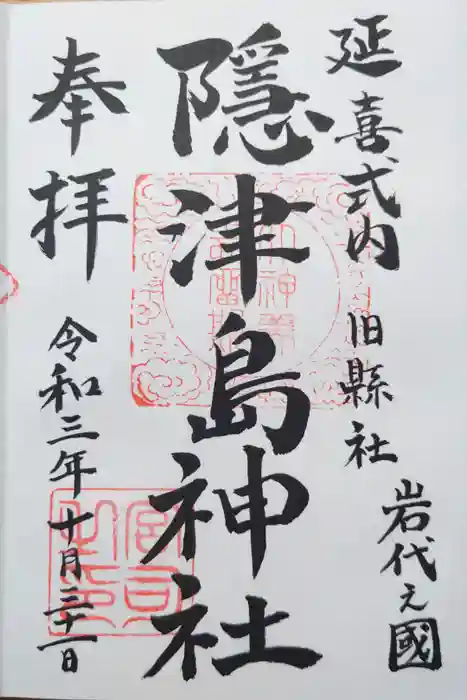 延喜式内 旧縣社
岩代之國
隱津島神社
奉拝
令和三年十月三十一日